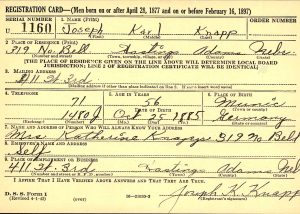 REGISTRATION CARD—(Men born on or after April 28, 1877 and on or before February 16, 1897)
SERIAL NUMBER 1. NAME (Print) ORDER NUMBER
U 1160 Joseph Karl Knapp
2. PLACE OF RESIDENCE (Print)
919 No. Bell Hastings Adams Nebr.
(Number and street) (Town, township, village, or city) (County) (State)
[THE PLACE OF RESIDENCE GIVEN ON THE LINE ABOVE WILL DETERMINE LOCAL BOARD
JURISDICTION; LINE 2 OF REGISTRATION CERTIFICATE WILL BE IDENTICAL]
3. MAILING ADDRESS
3rd
4. TELEPHONE 5. AGE IN YEARS 6. PLACE OF BIRTH
71 56 Munic
DATE OF BIRTH
480J Oct 25 1885 Germany
7. NAME AND ADDRESS OF PERSON WHO WILL ALWAYS KNOW YOUR ADDRESS
Mrs Katherine Knapp 919 No Bell
8. EMPLOYER'S NAME AND ADDRESS
Self
9. PLACE OF EMPLOYMENT OR BUSINESS
3rd Hastings Adams Nebr
(Number and street or R. F. D. number) (Town) (County) (State)
I AFFIRM THAT I HAVE VERIFIED ABOVE ANSWERS AND THAT THEY ARE TRUE.
D. S. S. Form 1
(Revised 4-1-42) (over) Joseph K. Knapp